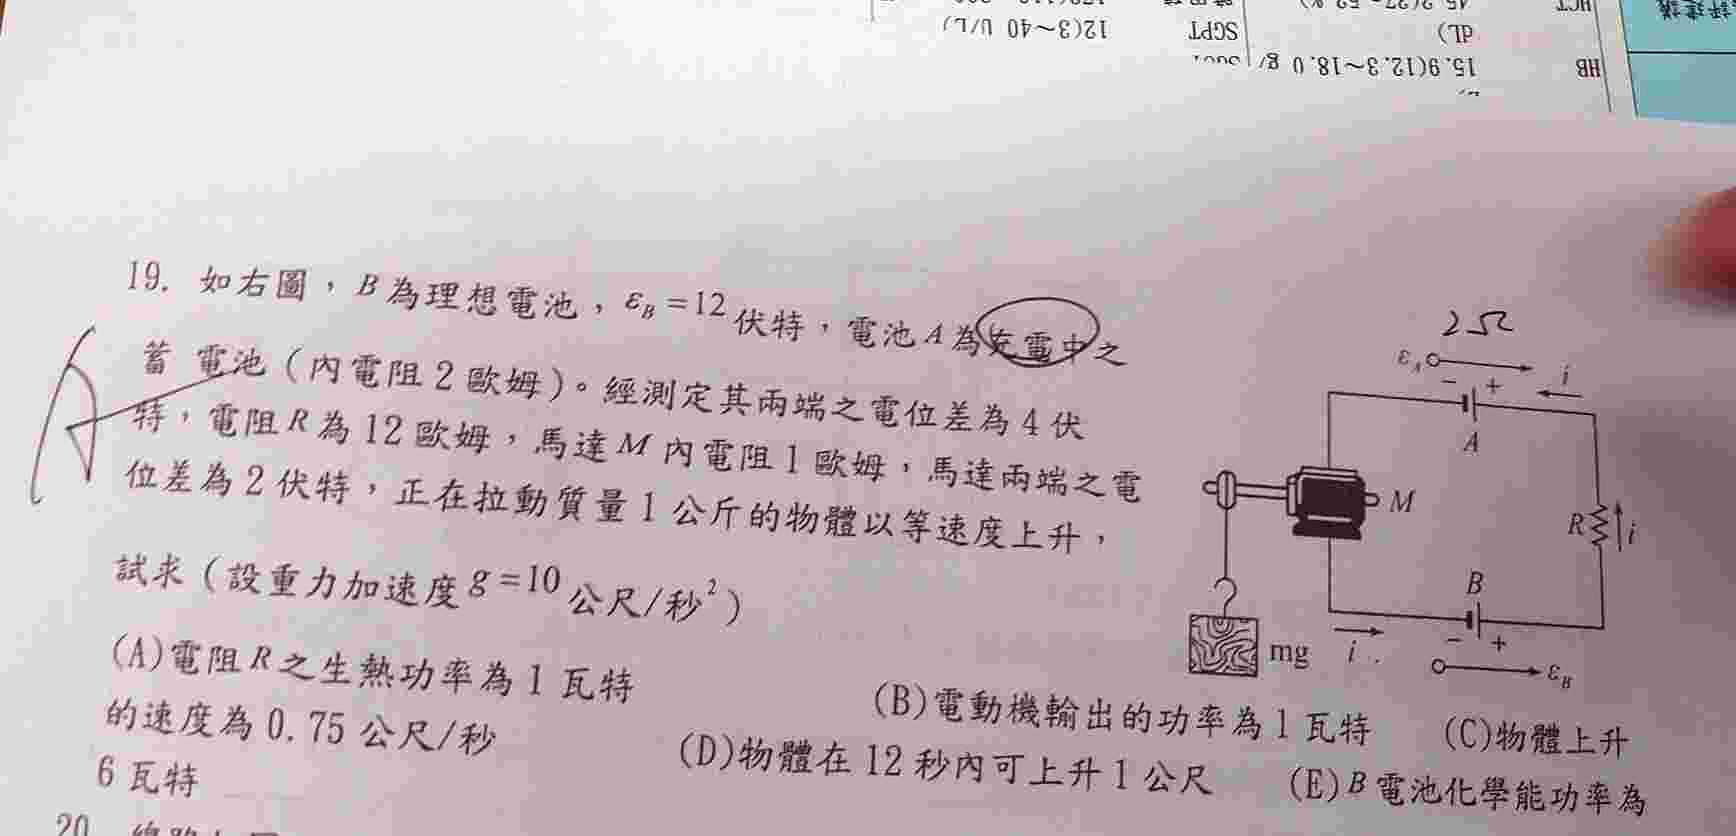 HCT
dL)
SGPT
12(3~40 U/L)
HB
15.9(12.3~18.0 g/
評建議
19. 如右圖，B為理想電池，ε_B=12伏特，電池A為充電中之
蓄 電池（內電阻2歐姆）。經測定其兩端之電位差為4伏
特，電阻R為12歐姆，馬達M內電阻1歐姆，馬達兩端之電
位差為2伏特，正在拉動質量1公斤的物體以等速度上升，
試求（設重力加速度g=10公尺/秒²）
(A)電阻R之生熱功率為1瓦特 (B)電動機輸出的功率為1瓦特 (C)物體上升
的速度為0.75公尺/秒 (D)物體在12秒內可上升1公尺 (E)B電池化學能功率為
6瓦特
2Ω
ε_A
i
- +
A
M
R i
B
- +
mg
i
ε_B
20